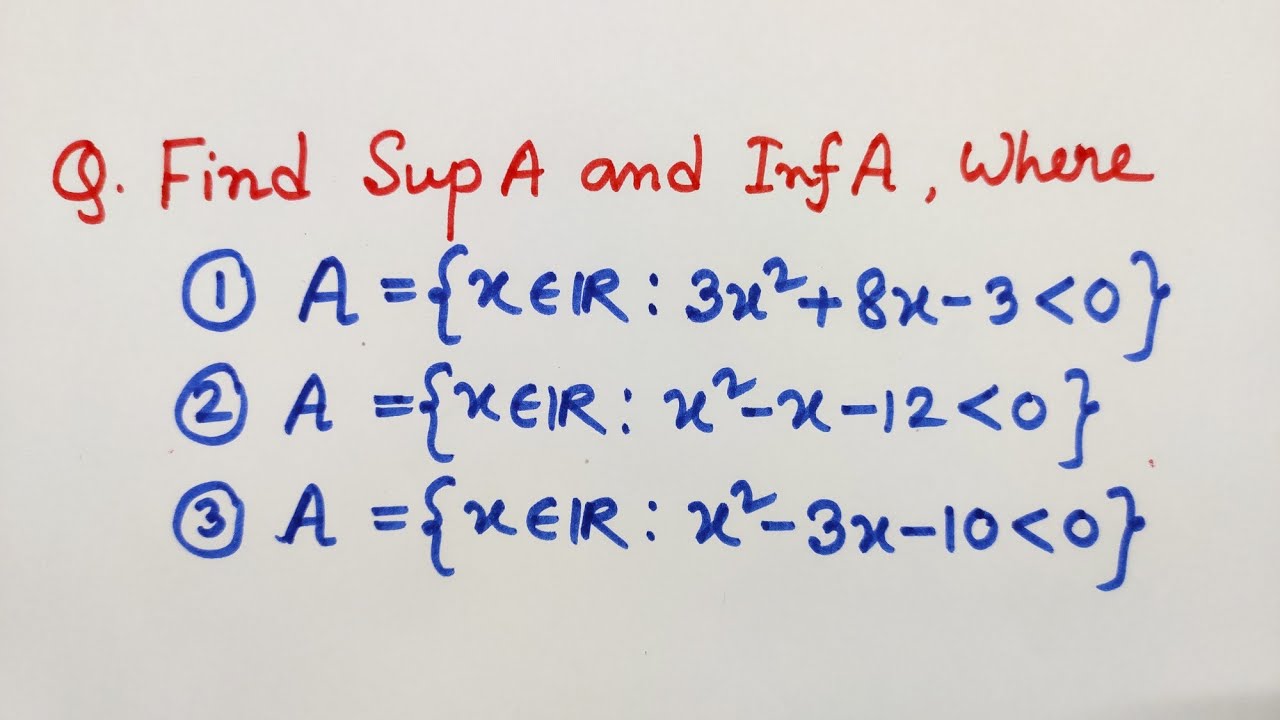 Q. Find Sup A and Inf A, Where
① A = {x∈ℝ : 3x²+8x-3<0}
② A = {x∈ℝ : x²-x-12<0}
③ A = {x∈ℝ : x²-3x-10<0}